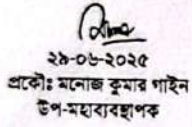 ২৯-০৬-২০২৫
প্রকৌঃ মনোজ কুমার গাইন
উপ-মহাব্যবস্থাপক